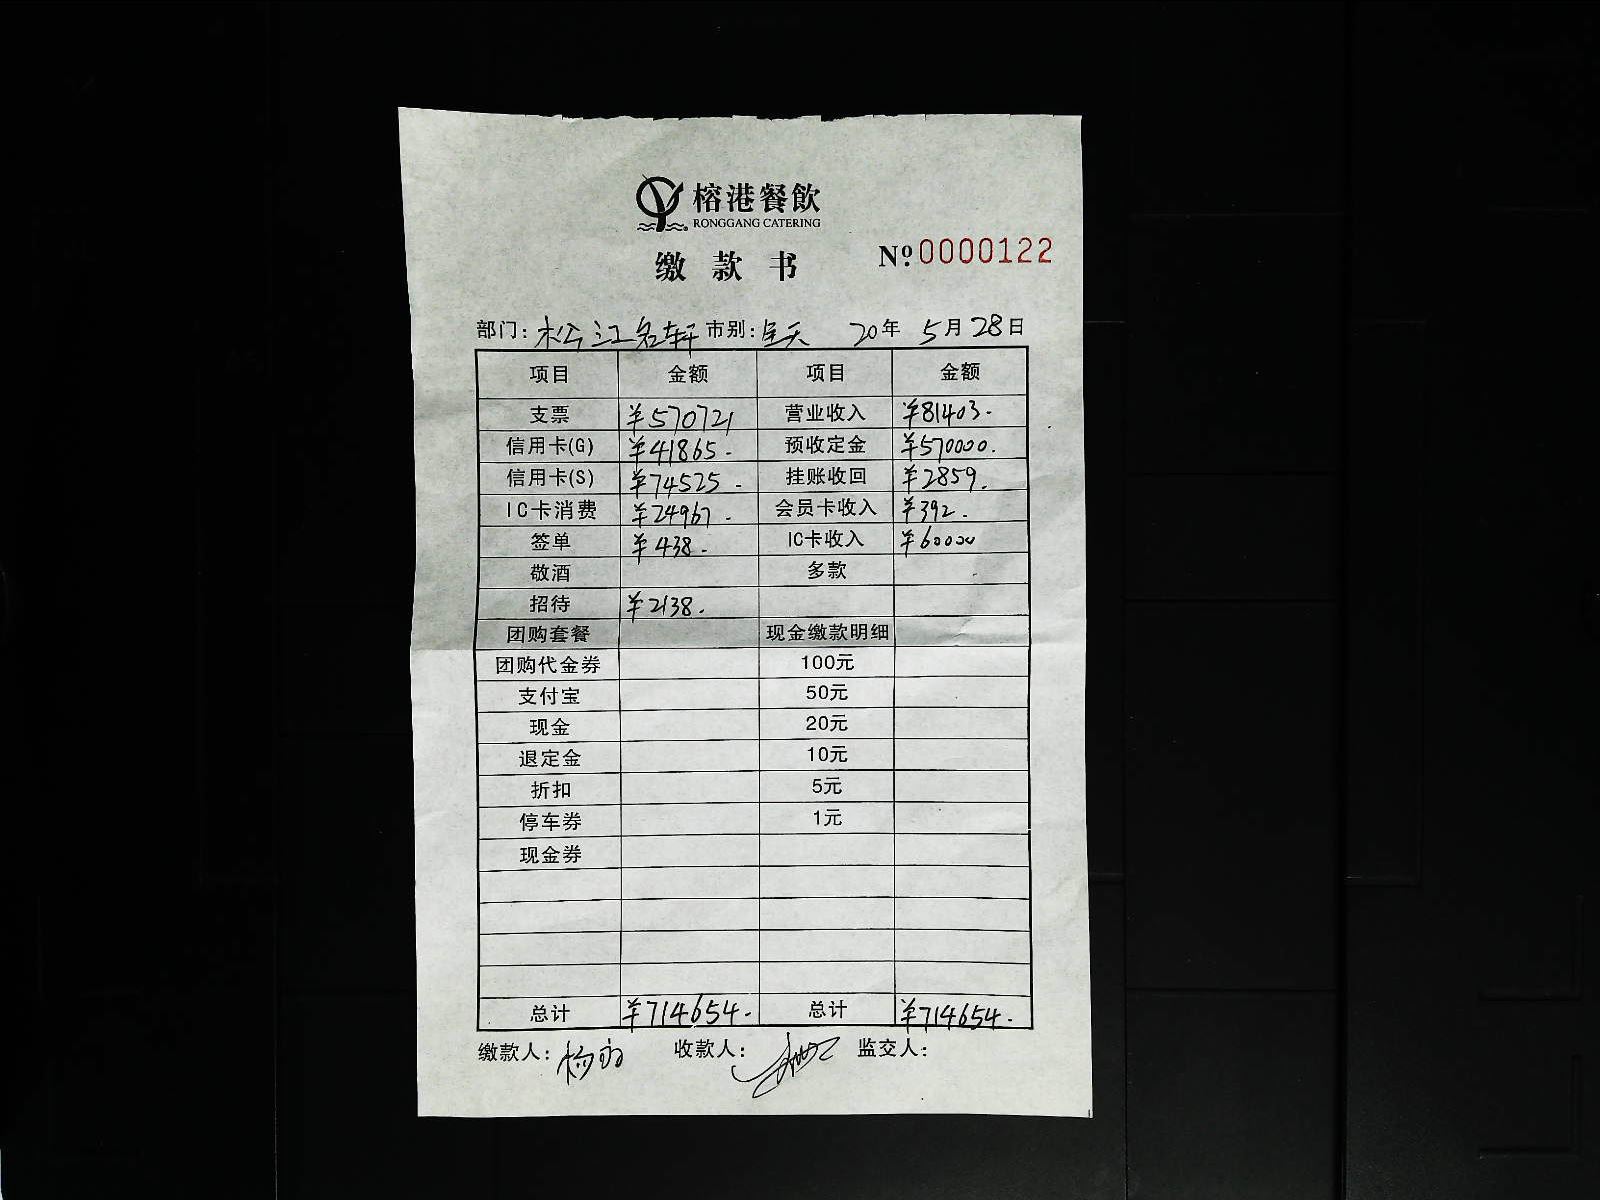 榕港餐飲
RONGGANG CATERING
缴款书 №0000122
部门: 松江名轩 市别: 全天 20年 5月28日
项目 金额 项目 金额
支票 ¥570721 营业收入 ¥81403.
信用卡(G) ¥41865. 预收定金 ¥570000.
信用卡(S) ¥74525. 挂账收回 ¥2859.
IC卡消费 ¥24967. 会员卡收入 ¥392.
签单 ¥438. IC卡收入 ¥60000
敬酒 多款
招待 ¥2138.
团购套餐 现金缴款明细
团购代金券 100元
支付宝 50元
现金 20元
退定金 10元
折扣 5元
停车券 1元
现金券
总计 ¥714654. 总计 ¥714654.
缴款人: 杨 收款人: 监交人: